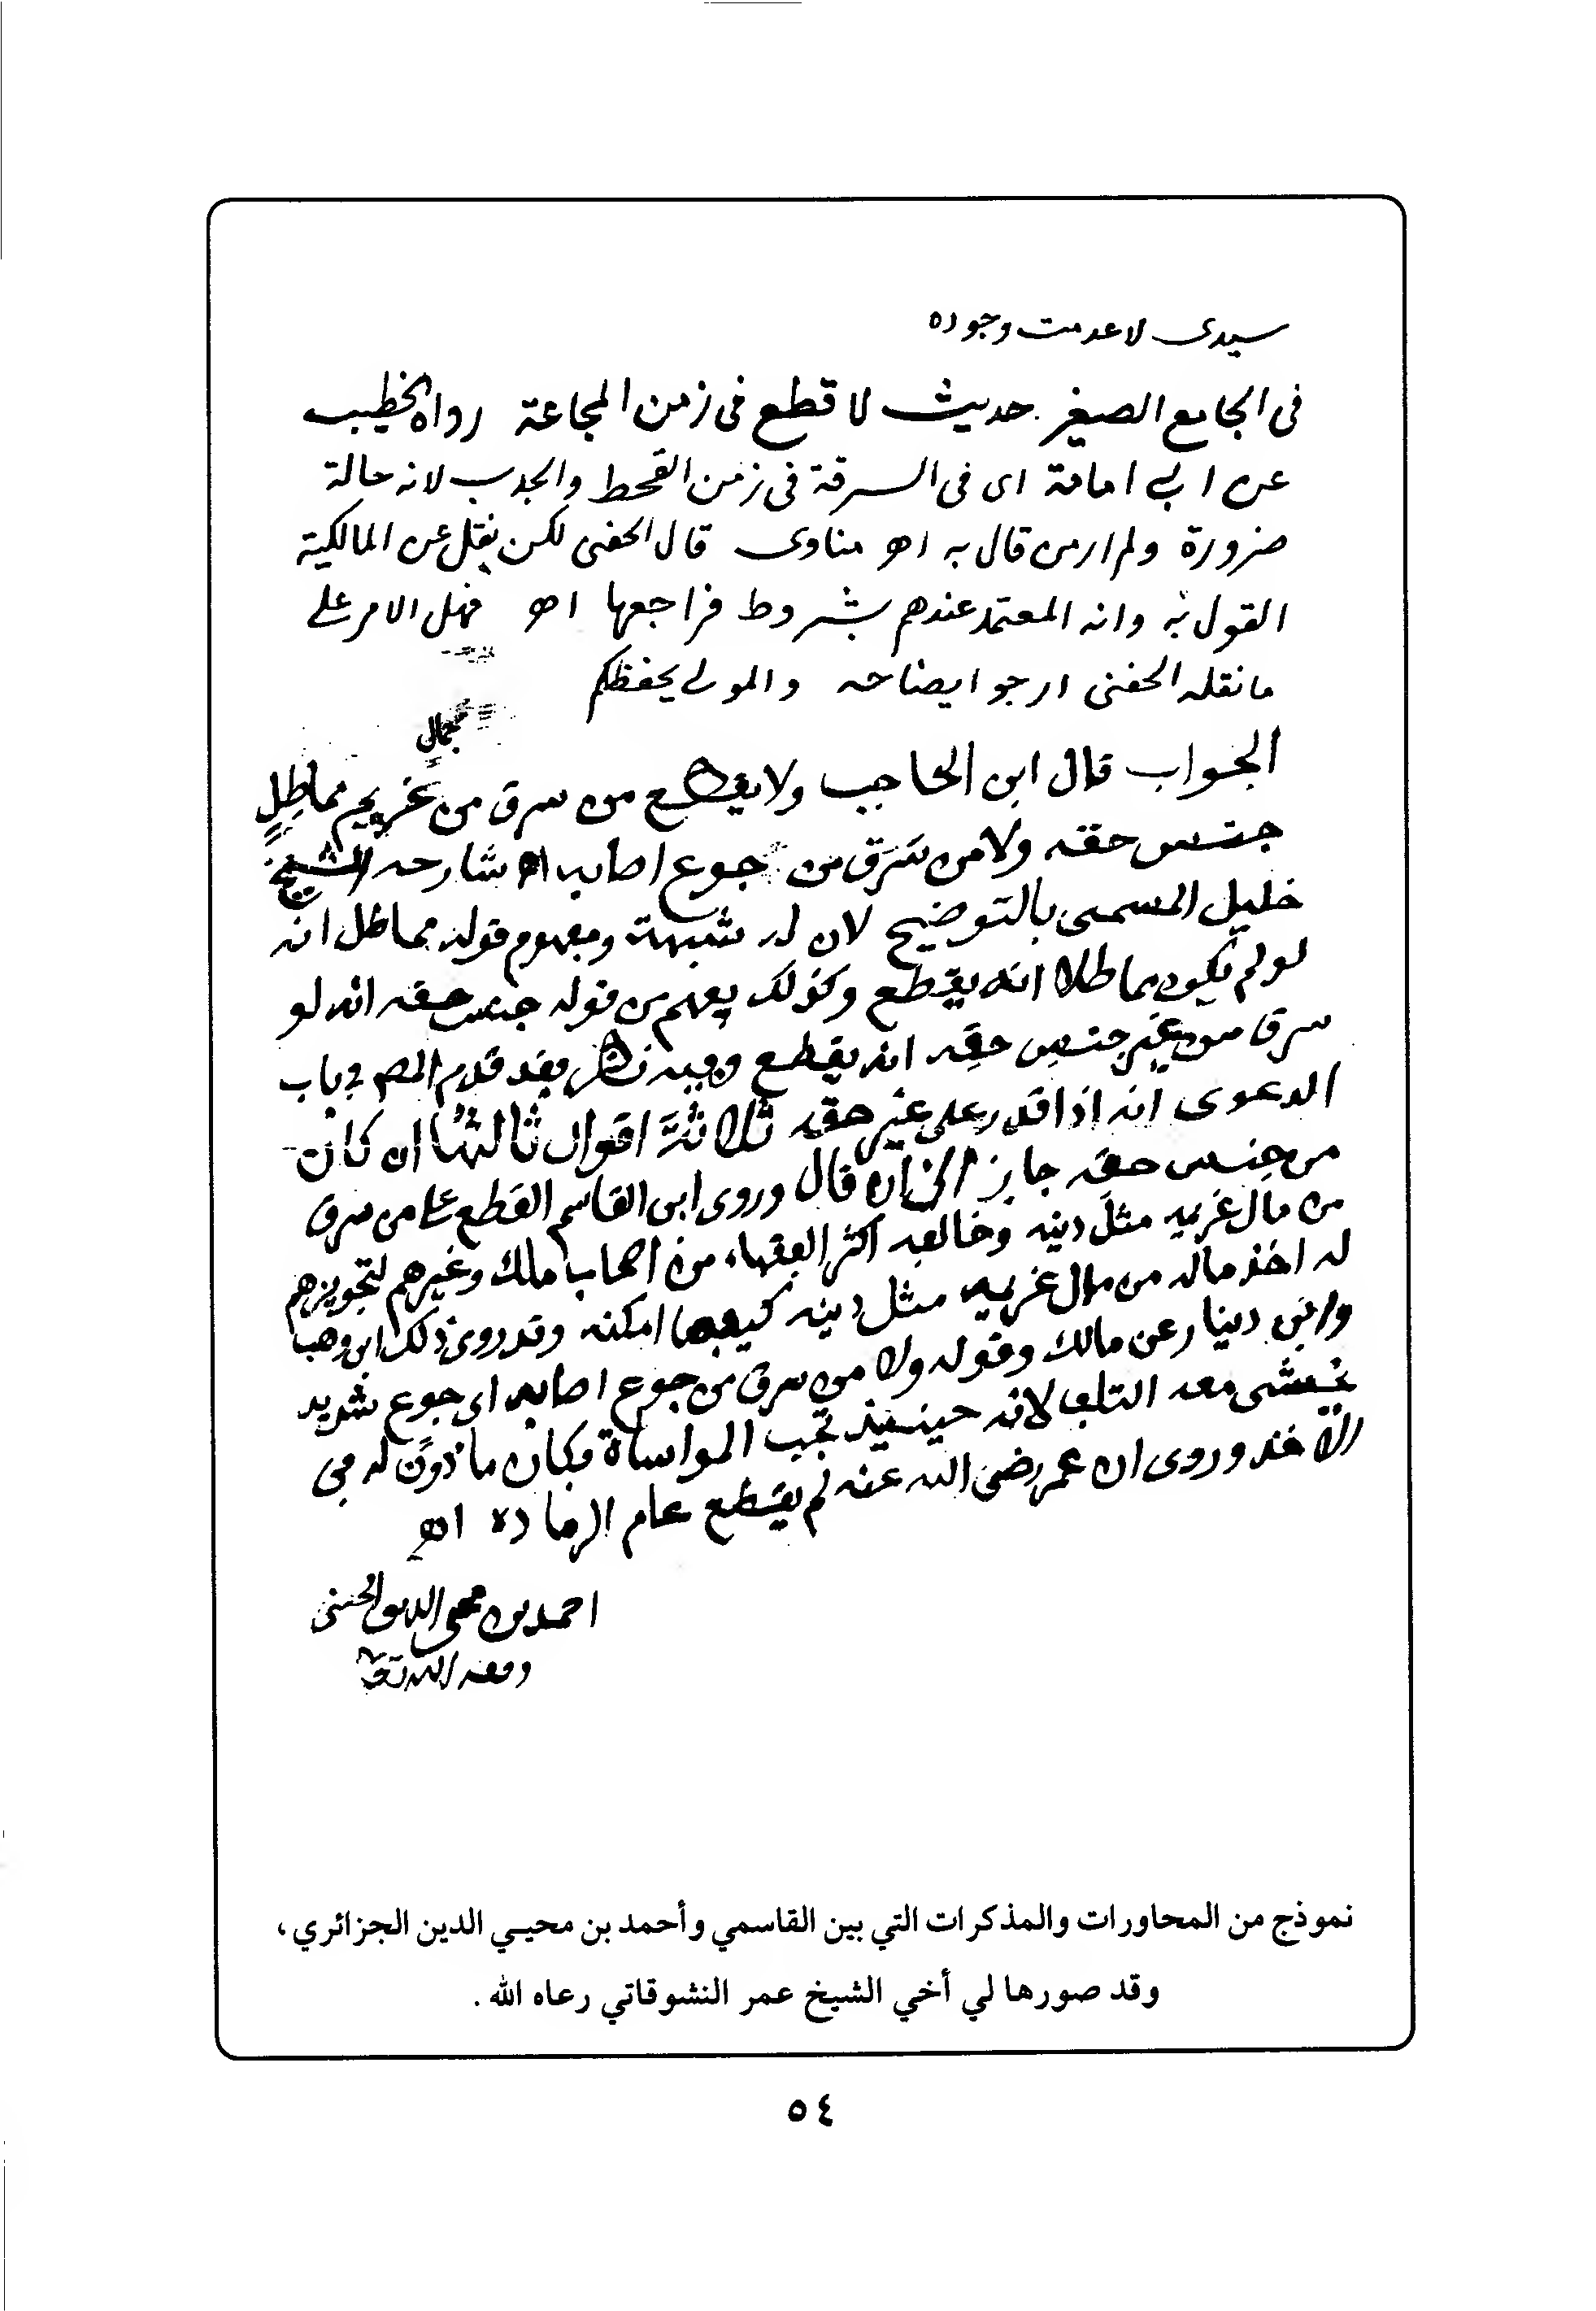 سيدى لا عدمت وجوده
فى الجامع الصغير حديث لا قطع فى زمن المجاعة رواه الخطيب
عن ابي امامة اى فى السرقة فى زمن القحط والجدب لانه حالة
ضرورة ولم ار من قال به اهـ مناوى قال الحفنى لكن نقل عن المالكية
القول به وانه المعتمد عندهم بشروط فراجعها اهـ فهل الامر على
ما نقله الحفنى ارجو ايضاحه والمولى يحفظكم
جمال
الجواب قال ابن الحاجب ولا يقطع من سرق من غريم مماطل
جنس حقه ولا من سَرَق من جوع اصابه اهـ شارحه الشيخ
خليل المسمى بالتوضيح لان له شبهة ومفهوم قوله مماطل انه
لو لم يكون مماطلا انه يقطع وكذلك يفهم من قوله جنس حقه انه لو
سرق من غير جنس حقه انه يقطع وفيه نظر فقد قدم المص في باب
الدعوى انه اذا قدر على غير حقه ثلاثة اقوال ثالثها ان كان
من جنس حقه جاز قال وروى ابن القاسم القطع على من سرق
من مال غريمه مثل دينه وخالفه اكثر الفقهاء من اصحاب ملك وغيرهم لتجويزهم
له اخذ ماله من مال غريمه مثل دينه كيفما امكنه وقد روى ذلك ابن وهب
وابن دينار عن مالك وقوله ولا من سرق من جوع اصابه اى جوع شديد
يخشى معه التلف لانه حينئذ تجب المواساة فكان ماذون له في
الاخذ وروى ان عمر رضى الله عنه لم يقطع عام الرمادة اهـ
احمد بن محى الدين الحسنى
وفقه الله تعا
نموذج من المحاورات والمذكرات التي بين القاسمي وأحمد بن محيـي الدين الجزائري،
وقد صورها لي أخي الشيخ عمر النشوقاتي رعاه الله.
٥٤